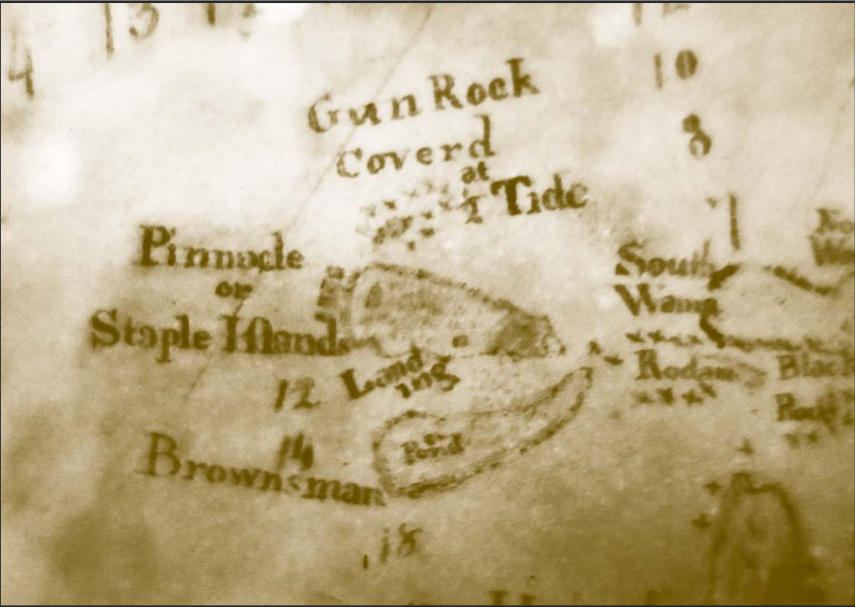 4
13
12
10
8
Gun Rock
Coverd
at
½ Tide
Pinnacle
or
Staple Iſlands
South
Wams
Rodam
Black
Rock
Land
ing
12
14
Brownsman
Pond
18